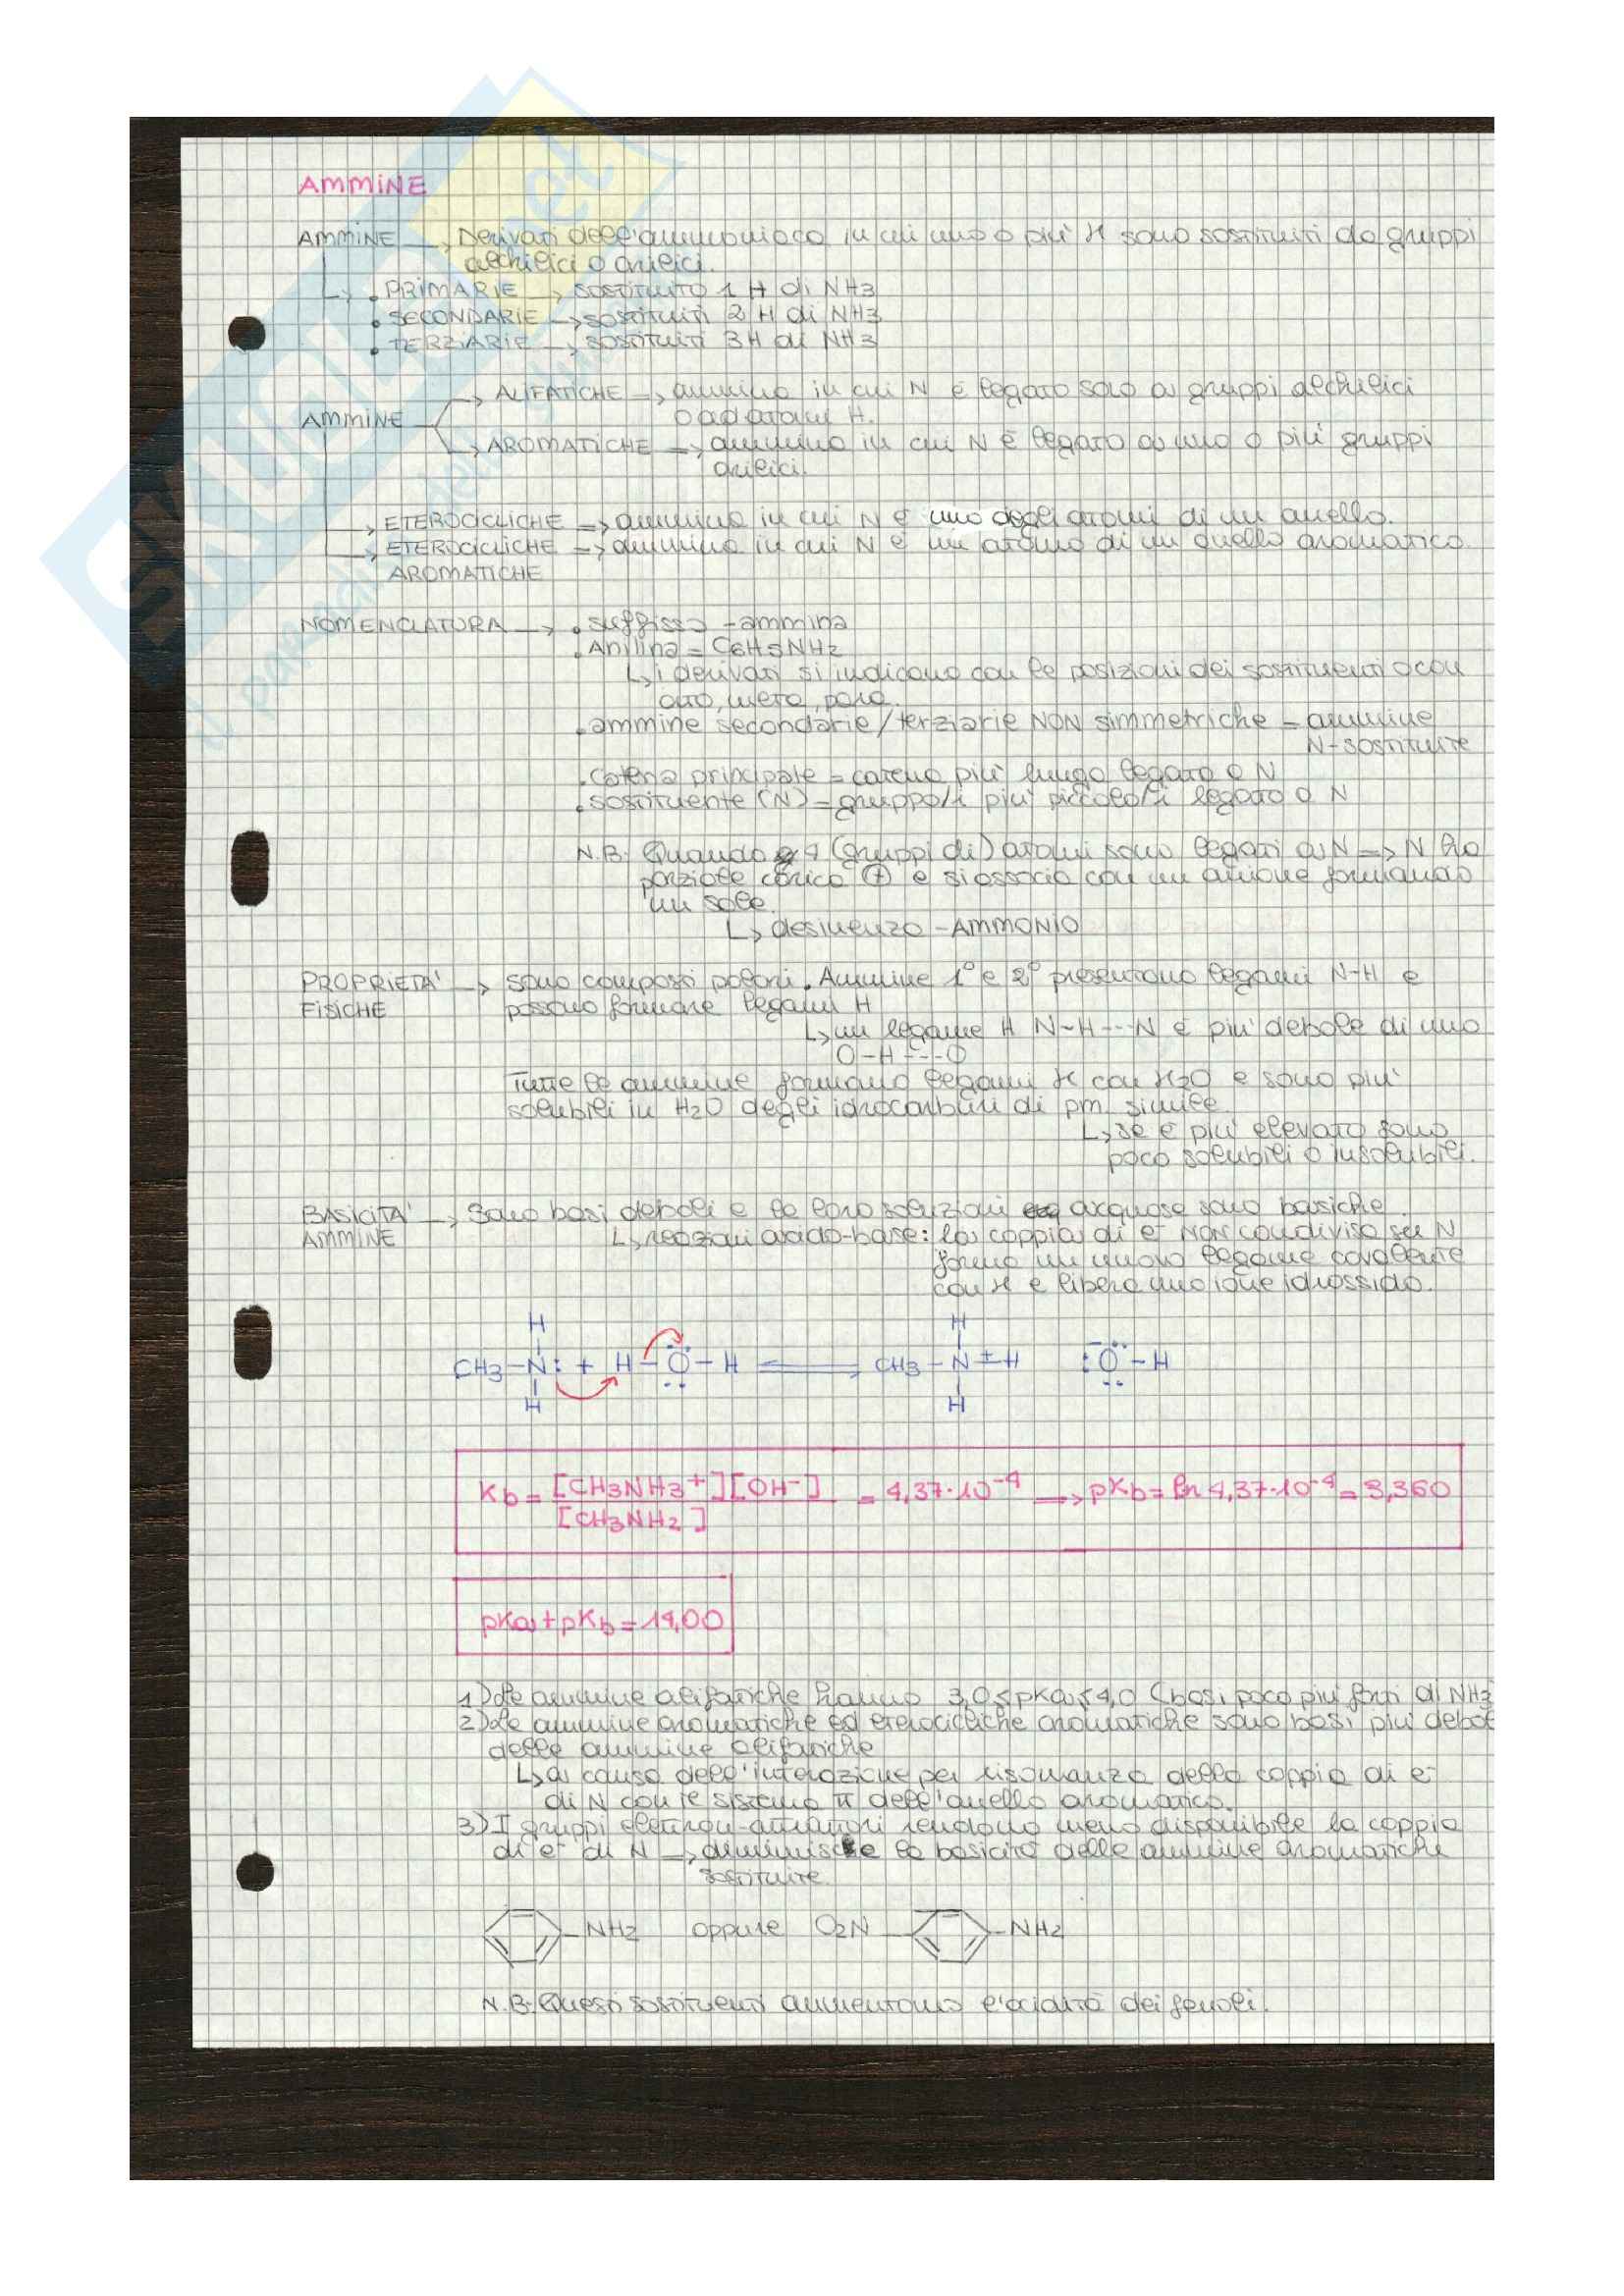 AMMINE
AMMINE → Derivati dell'ammoniaca in cui uno o più H sono sostituiti da gruppi
alchilici o arilici.
↳ . PRIMARIE → sostituito 1 H di NH3
. SECONDARIE → sostituiti 2 H di NH3
. TERZIARIE → sostituiti 3H di NH3
→ ALIFATICHE → ammina in cui N è legato solo a gruppi alchilici
AMMINE
o ad atomi H.
↳ AROMATICHE → ammina in cui N è legato a uno o più gruppi
arilici.
→ ETEROCICLICHE → ammina in cui N è uno degli atomi di un anello.
→ ETEROCICLICHE → ammina in cui N è un atomo di un anello aromatico.
AROMATICHE
NOMENCLATURA → . suffisso -ammina
. Anilina = C6H5NH2
↳ i derivati si indicano con le posizioni dei sostituenti o con
orto, meta, para.
. ammine secondarie/terziarie NON simmetriche = ammine
N-sostituite
. catena principale = catena più lunga legata a N
. sostituente (N) = gruppo/i più piccolo/i legato a N
N.B. Quando 4 (gruppi di) atomi sono legati a N → N ha
parziale carica (+) e si associa con un anione formando
un sale.
↳ desinenza -AMMONIO
PROPRIETA' → sono composti polari. Ammine 1° e 2° presentano legami N-H e
FISICHE possono formare legami H
↳ un legame H N-H---N è più debole di uno
O-H---O
Tutte le ammine formano legami H con H2O e sono più
solubili in H2O degli idrocarburi di pm. simile.
↳ se è più elevato sono
poco solubili o insolubili.
BASICITA' → Sono basi deboli e le loro soluzioni acquose sono basiche.
AMMINE ↳ reazioni acido-base: la coppia di e- NON condivisa su N
forma un nuovo legame covalente
con H e libera uno ione idrossido.
H H
CH3-N: + H-O-H ⇌ CH3-N±H :O-H
H H
Kb = [CH3NH3+][OH-] / [CH3NH2] = 4,37·10-4 → pKb = ln 4,37·10-4 = 3,360
pKa + pKb = 14,00
1) Le ammine alifatiche hanno 3,0≤pKa≤4,0 (basi poco più forti di NH3
2) Le ammine aromatiche ed eterocicliche aromatiche sono basi più debol
delle ammine alifatiche
↳ a causa dell'interazione per risonanza della coppia di e-
di N con il sistema π dell'anello aromatico.
3) I gruppi elettron-attrattori rendono meno disponibile la coppia
di e- di N → diminuisce la basicità delle ammine aromatiche
sostituite.
-NH2 oppure O2N- -NH2
N.B. Questi sostituenti aumentano l'acidità dei fenoli.
SKUOLA.net
il paradiso dello studente